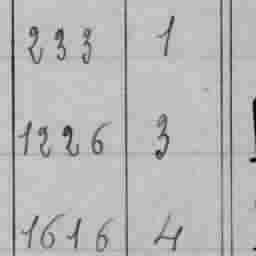 233 1
1226 3
1616 4